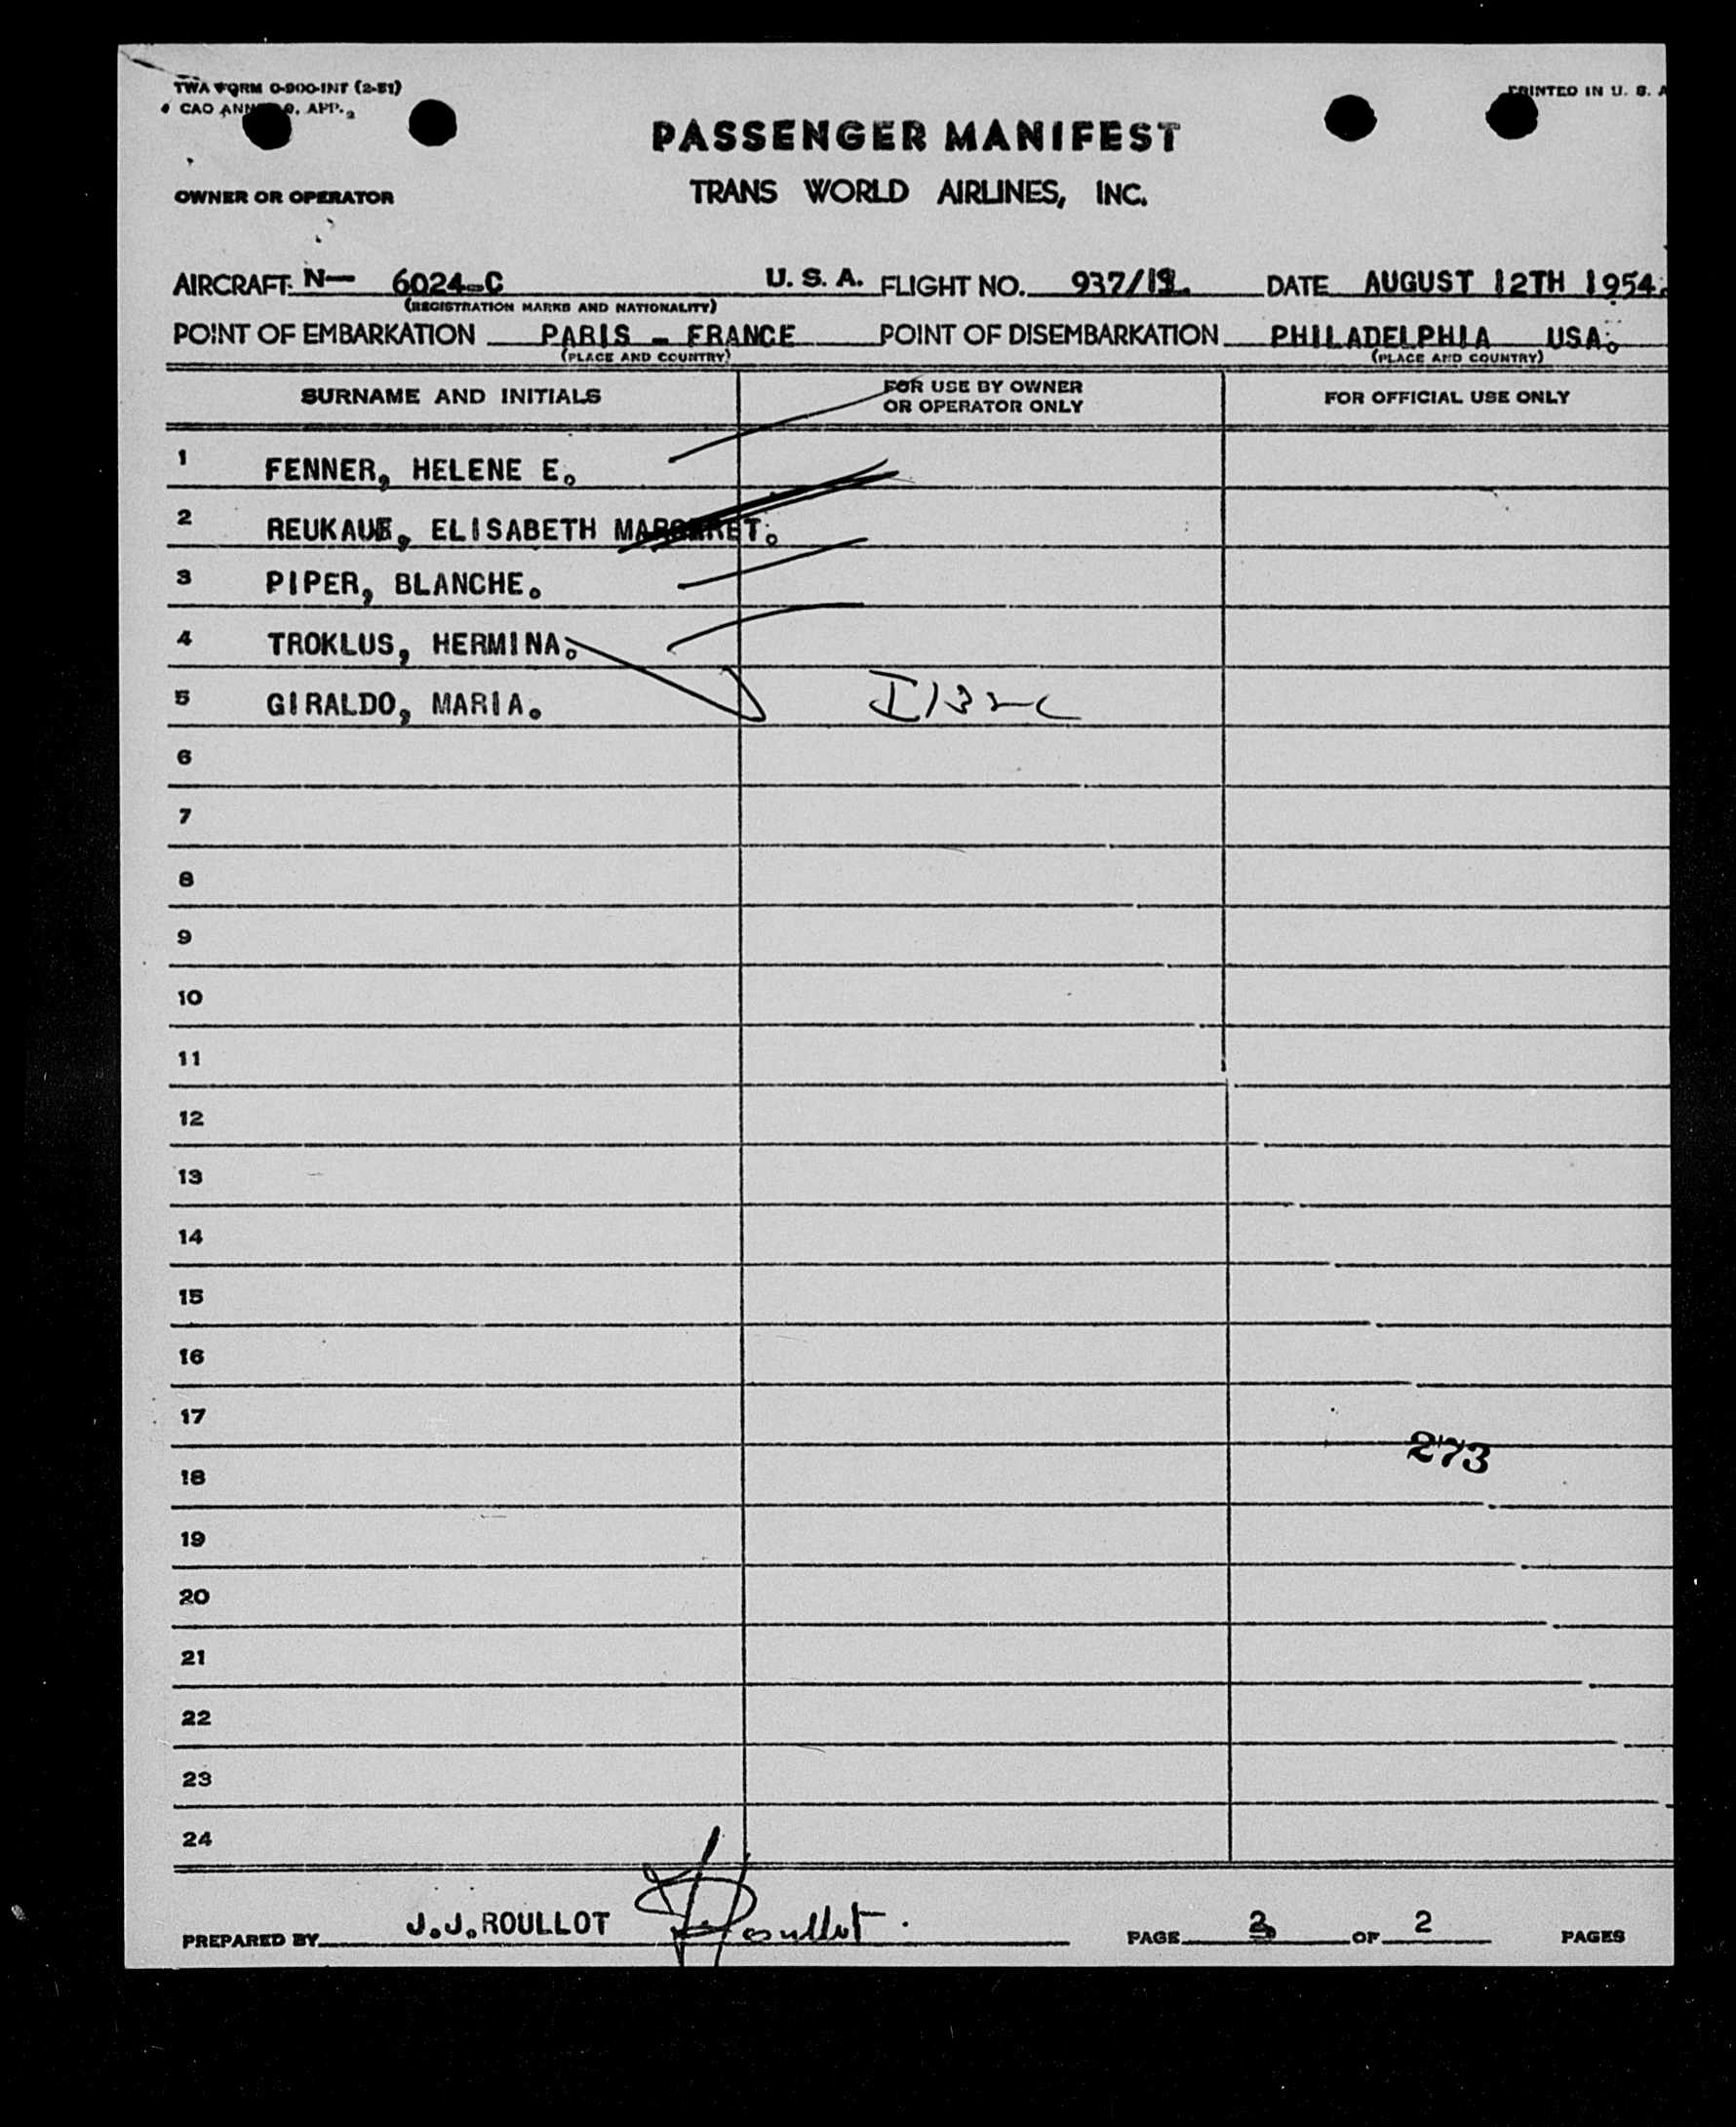 TWA FORM 0-900-INT (2-51)
PRINTED IN U. S. A
CAO APP. 2
PASSENGER MANIFEST
OWNER OR OPERATOR
TRANS WORLD AIRLINES, INC.
AIRCRAFT: N— 6024-C U. S. A. FLIGHT NO. DATE AUGUST 12TH 1954.
(REGISTRATION MARKS AND NATIONALITY)
POINT OF EMBARKATION PARIS - FRANCE POINT OF DISEMBARKATION PHILADELPHIA USA.
(PLACE AND COUNTRY) (PLACE AND COUNTRY)
SURNAME AND INITIALS
FOR USE BY OWNER
OR OPERATOR ONLY
FOR OFFICIAL USE ONLY
1 FENNER, HELENE E.
2 ELISABETH MARGARET.
3 PIPER, BLANCHE.
4 TROKLUS, HERMINA.
5 GIRALDO, MARIA.
6
7
8
9
10
11
12
13
14
15
16
17
273
18
19
20
21
22
23
24
PREPARED BY J.J.ROULLOT Roullot. PAGE 2. OF 2 PAGES